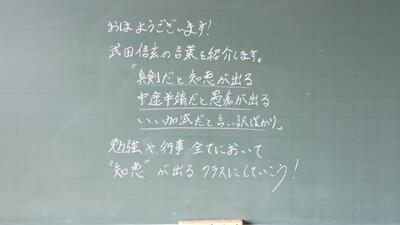 おはようございます!
武田信玄の言葉を紹介します。
「真剣だと知恵が出る
中途半端だと愚痴が出る
いい加減だと言い訳ばかり」
勉強や行事 全てにおいて
"知恵" が出る クラスにしていこう!